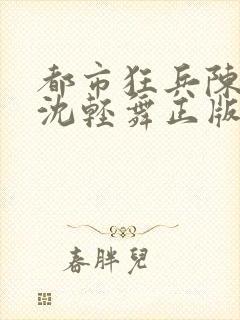 都市狂兵陳
沈輕舞正版
春胖兒